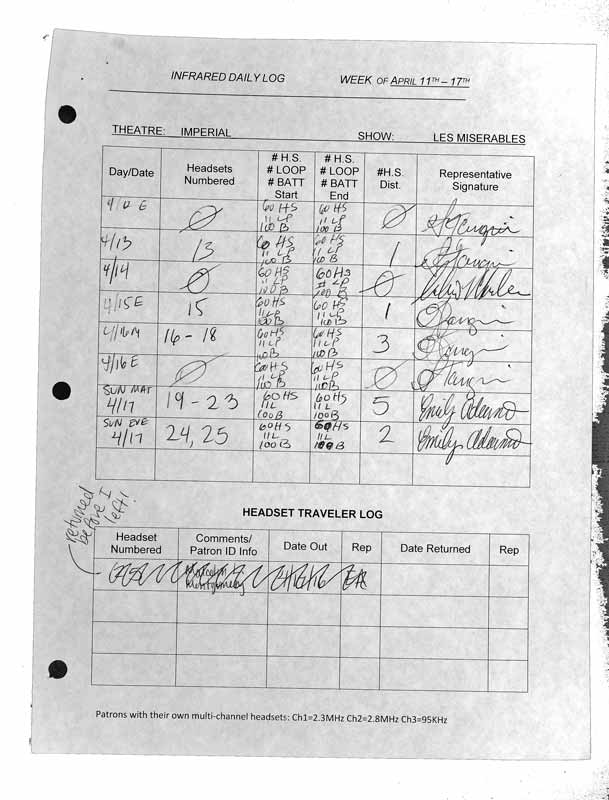 INFRARED DAILY LOG WEEK OF APRIL 11TH – 17TH
THEATRE: IMPERIAL SHOW: LES MISERABLES
Day/Date Headsets Numbered # H.S. # LOOP # BATT Start # H.S. # LOOP # BATT End #H.S. Dist. Representative Signature
4/12 E Ø 60 HS 11 LP 100 B 60 HS 11 LP 100 B Ø
4/13 13 60 HS 11 LP 100 B 60 HS 11 LP 100 B 1
4/14 Ø 60 HS 11 LP 100 B 60 HS LP 100 B Ø
4/15 E 15 60 HS 11 LP 100 B 60 HS 11 LP 100 B 1
4/16 M 16 - 18 60 HS 11 LP 100 B 60 HS 11 LP 100 B 3
4/16 E Ø 60 HS 11 LP 100 B 60 HS 11 LP 100 B Ø
SUN MAT 4/17 19 - 23 60 HS 11 L 100 B 60 HS 11 L 100 B 5 Emily
SUN EVE 4/17 24, 25 60 HS 11 L 100 B 60 HS 11 L 100 B 2 Emily
returned
before I
left!
HEADSET TRAVELER LOG
Headset Numbered Comments/ Patron ID Info Date Out Rep Date Returned Rep
Montgomery
Patrons with their own multi-channel headsets: Ch1=2.3MHz Ch2=2.8MHz Ch3=95KHz